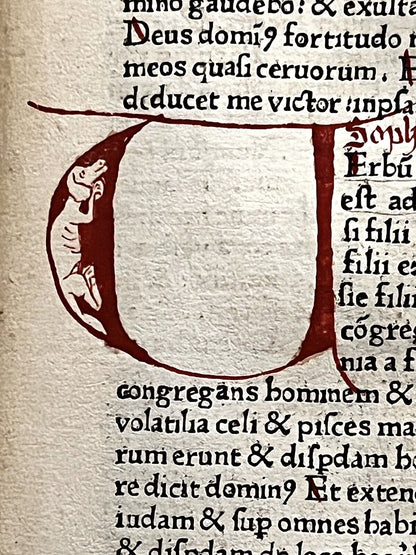 mino gaudebo: & exulta
Deus domī9 fortitudo
meos quasi ceruorum.
deducet me victor inpsa
Soph
U Erbū
est ad
si filii
filii
sie filii
cōgreg
nia a f
congregans hominem &
volatilia celi & pisces ma
rum erunt & dispdam bo
re dicit domin9 Et exten
iudam & sup omnes habi
& dispdam de loco